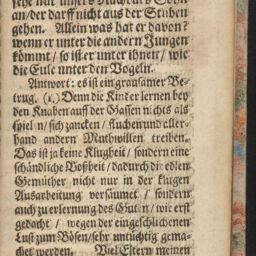 sehe nur unsers Nachbars Sohn
an/der darff nicht aus der Stuben
gehen. Allein was hat er davon?
wenn er unter die andern Jungen
kömmt/ so ist er unter ihnen/ wie
die Eule unter den Vogeln.
Antwort: es ist ein grausamer Be-
trug. (1.) Denn die Kinder lernen bey
den Knaben auff der Gassen nichts als
spielen/ sich zancken/ fluchen und aller-
hand andern Muthwillen treiben.
Das ist ja keine Klugheit/ sondern eine
schändliche Boßheit/ dadurch die edlen
Gemüther nicht nur in der klugen
Ausarbeitung versäumet / sondern
auch zu erlernung des Guten/ wie erst
gedacht / wegen der eingeschlichenen
Lust zum Bösen/sehr untüchtig gema-
chet werden. Viel Eltern meinen